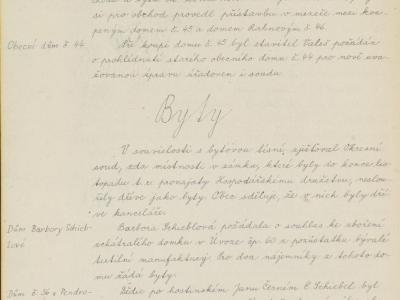 se pro obchod provedl přístavbu v mezeře mezi kou-
peným domem č. 45 a domem Rabnovým č. 46.
Obecní dům č. 44. Při koupi domu č. 45 byl stavitel Valeš požádán
o prohlédnutí starého obecního domu č. 44 pro nově uva-
žovanou úpravu úřadoven i soudu.
Byty
V souvislosti s bytovou tísní, zjišťoval Okresní
soud, zda místnosti v zámku, které byly do konce lis-
topadu t. r. pronajaty Hospodářskému družstvu, neslou-
žily dříve jako byty. Obec sděluje, že v nich byly dří-
ve kanceláře.
Dům Barbory Schieb-
lové
Barbora Schieblová požádala o souhlas ke zboření
zchátralého domku v Úvoze čp. 60 z pozůstatku bývalé
textilní manufaktury. Pro dva nájemníky z tohoto do-
mu žádá byty.
Dům č. 36 v Pendro-
Dědic po hostinském Janu Černém C. Schiebel byl